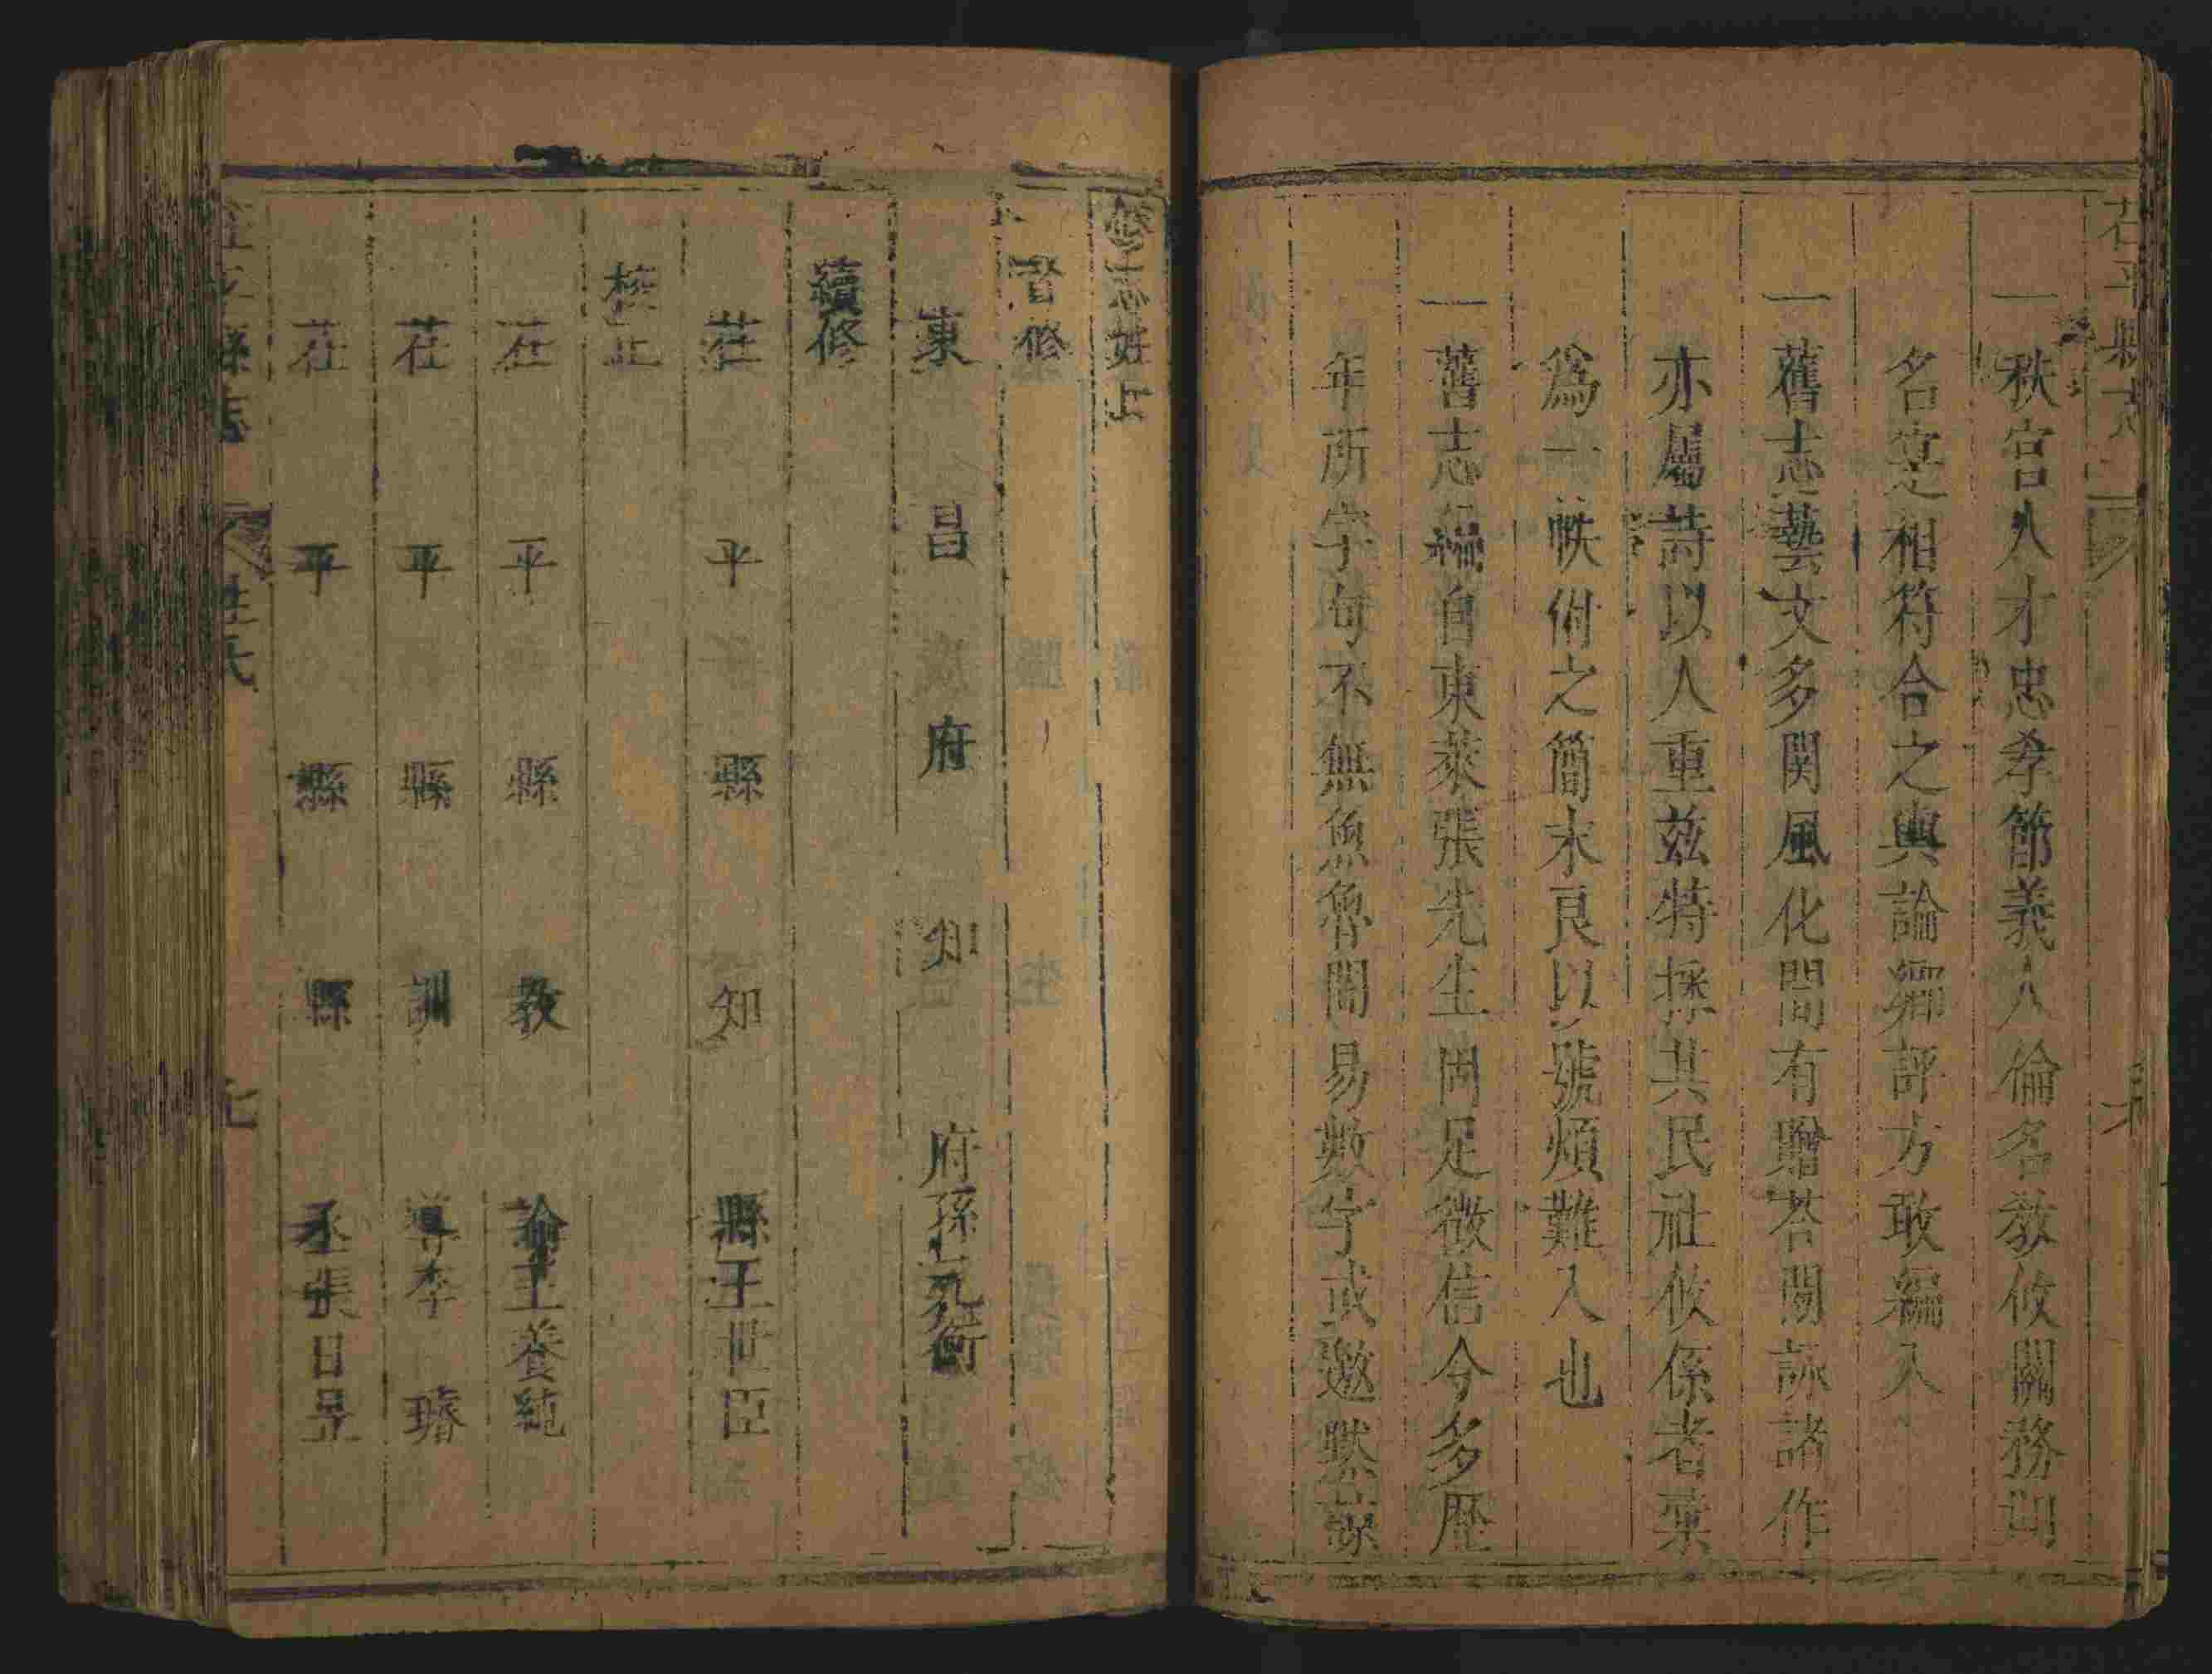 一秩官人才忠孝節義人倫名教攸關務期
名寔相符合之輿論鄉評方敢編入
一舊志藝文多関風化間有贈荅関詠諸作
亦屬詩以人重兹特採其民社攸係者彙
爲一帙附之簡末良以號煩難入也
一舊志編自東萊張先生固足徵信今多歷
年所字句不無魚魯間易數字或邀默
修志姓氏
督修
東昌府知府孫一孔衡
續修
茌平縣知縣王世臣
校正
茌平縣教諭王養純
茌平縣訓導李璿
茌平縣縣丞張日昂
茌平縣志 姓氏 七